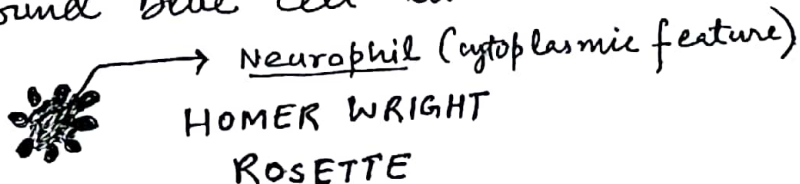 round blue cell
Neurophil (cytoplasmic feature)
HOMER WRIGHT
ROSETTE